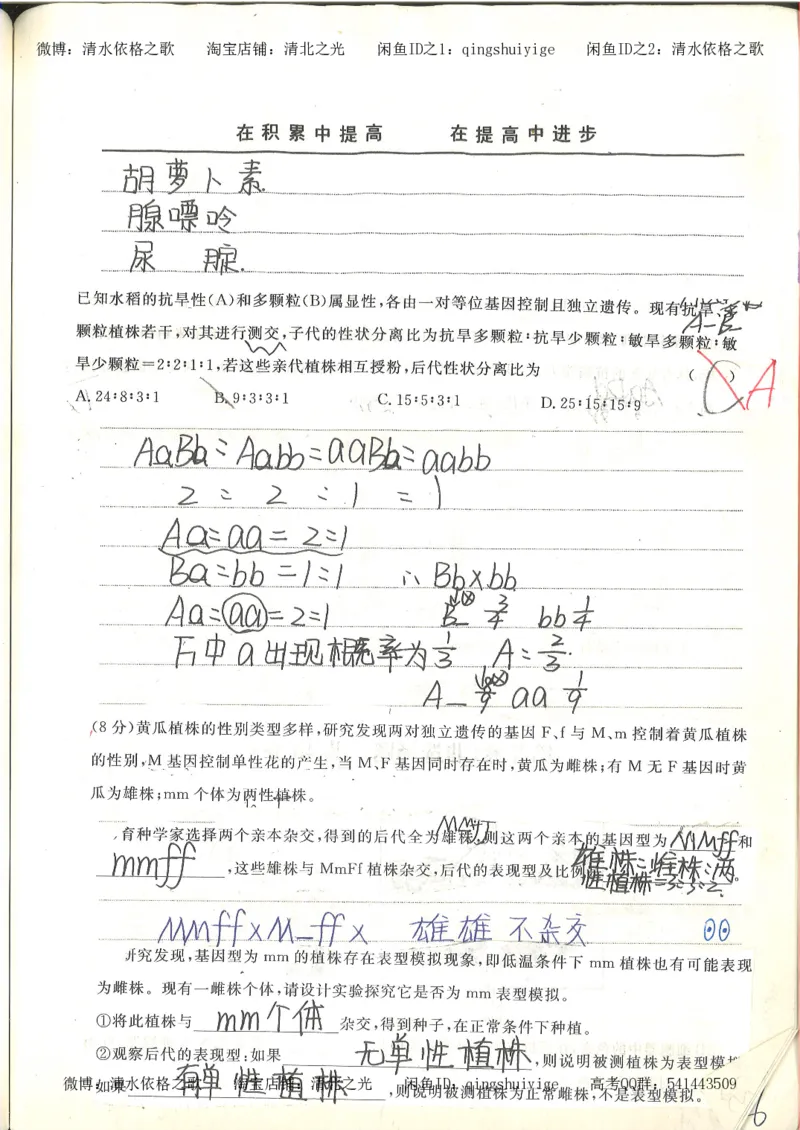 微博：清水依格之歌 淘宝店铺：清北之光 闲鱼ID之1：qingshuiyige 闲鱼ID之2：清水依格之歌
在积累中提高 在提高中进步
胡萝卜素.
腺嘌呤
尿 腚.
已知水稻的抗旱性(A)和多颗粒(B)属显性,各由一对等位基因控制且独立遗传。现有抗旱、多
A_B_
颗粒植株若干,对其进行测交,子代的性状分离比为抗旱多颗粒:抗旱少颗粒:敏旱多颗粒:敏
旱少颗粒=2:2:1:1,若这些亲代植株相互授粉,后代性状分离比为 ( C ) A
A. 24:8:3:1 B. 9:3:3:1 C. 15:5:3:1 D. 25:15:15:9
AaBb:Aabb:aaBb:aabb
2 : 2 : 1 : 1
Aa:aa=2:1
Ba:bb=1:1 ∴Bb×bb
Aa:aa=2:1 B_ 3/4 bb 1/4
F1中a出现概率为1/3 A:2/3.
A_ 8/9 aa 1/9
(8分)黄瓜植株的性别类型多样,研究发现两对独立遗传的基因F、f与M、m控制着黄瓜植株
的性别,M基因控制单性花的产生,当M、F基因同时存在时,黄瓜为雌株;有M无F基因时黄
瓜为雄株;mm个体为两性植株。
育种学家选择两个亲本杂交,得到的后代全为雄株,则这两个亲本的基因型为 MMff 和
mmff ,这些雄株与MmFf植株杂交,后代的表现型及比例 雄株:雌株:两
性植株=3:3:2 。
MMff×M_ff× 雄雄 不杂交
研究发现,基因型为mm的植株存在表型模拟现象,即低温条件下mm植株也有可能表现
为雌株。现有一雌株个体,请设计实验探究它是否为mm表型模拟。
①将此植株与 mm个体 杂交,得到种子,在正常条件下种植。
②观察后代的表现型:如果 无单性植株 ,则说明被测植株为表型模
微博：清水依格之歌 淘宝店铺：清北之光 闲鱼ID：qingshuiyige 高考QQ群：541443509
如果 有单性植株 ,则说明被测植株为正常雌株,不是表型模拟。
6